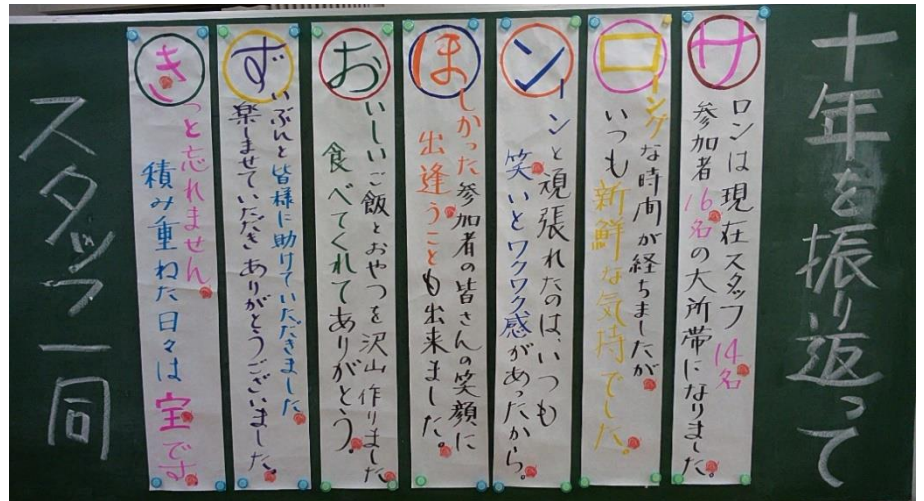 十年を振り返って
サロンは現在スタッフ14名
参加者16名の大所帯になりました。
ロングな時間が経ちましたが
いつも新鮮な気持でした。
ンーンと頑張れたのは、いつも
笑いとワクワク感があったから。
ほしかった参加者の皆さんの笑顔に
出逢うことも出来ました。
おいしいご飯とおやつを沢山作りました
食べてくれてありがとう。
ずいぶんと皆様に助けていただきました
楽しませていただきありがとうございました。
きっと忘れません
積み重ねた日々は宝です
スタッフ一同